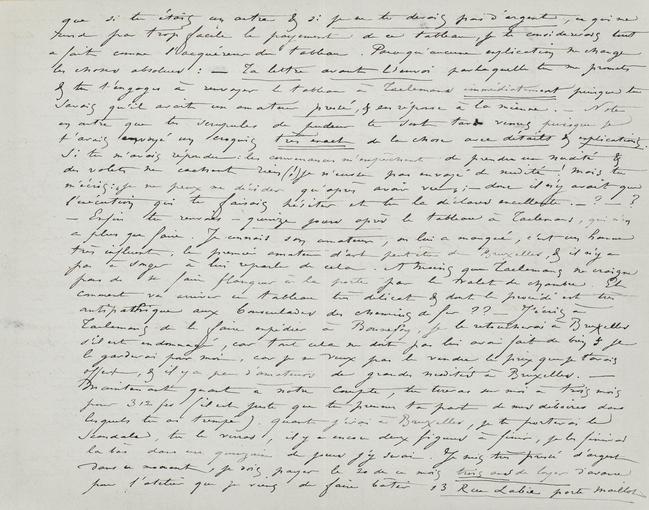 que si tu étais un autre & si je ne te devais pas d'argent, ce qui me
rende par trop facile le payement de ce tableau, je te considèrerais tout
à fait comme l'acquéreur du tableau. Pour qu'aucune explication ne change
les choses absolues : — Ta lettre avant l'envoi par laquelle tu me promets
& tu t'engages à renvoyer le tableau à Taelemans immédiatement puisque tu
savais qu'il avait un amateur pressé, & en réponse à la mienne. — Note
en outre que tes scrupules de pudeur te sont tard venus puisque je
t'avais envoyé un croquis très exact de la chose avec détails & explications.
Si tu m'avais répondu : les convenances m'empêchent de prendre une nudité &
des volets ne cachent rien (!) je n'eusse pas envoyé de nudité ! mais tu
m'écris : je ne peux me décider qu'après avoir vu ; — donc il n'y avait que
l'exécution qui te faisait hésiter et tu la déclares excellente. — ? — ?
— Enfin tu renvoies quinze jours après le tableau à Taelemans, qui n'en
a plus que faire. Je connais son amateur, on lui a manqué, c'est un homme
très influent, le premier amateur d'art de Bruxelles, & il n'y a
pas à songer à lui reparler de cela. A moins que Taelemans ne craigne
pas de se faire flanquer à la porte par le valet de chambre. Et
comment va arriver ce tableau très délicat & dont le procédé est très
antipathique aux bousculades des chemins de fer ?? — J'écris à
Taelemans de le faire expédier à je le retoucherai à Bruxelles
s'il est endommagé, car tout cela ne doit pas lui avoir fait de bien & je
le garderai pour moi, car je ne veux pas le vendre le prix que je t'avais
offert, & il y a peu d'amateurs de grandes nudités à Bruxelles. —
Maintenant quant à notre compte, tu tireras sur moi à trois mois
pour 312 frs (il est juste que tu prennes ta part de mes déboires dans
lesquels tu as trempé). Quand j'irai à Bruxelles, je te porterai le
Scandale, tu le verras, il y a encore deux figures à finir, je les finirai
là bas dans une quinzaine de jours j'y serai. Je suis très pressé d'argent
dans ce moment, je dois payer le 20 de ce mois trois ans de loyer d'avance
par l'atelier que je viens de faire bâtir 13 Rue Labie porte Maillot